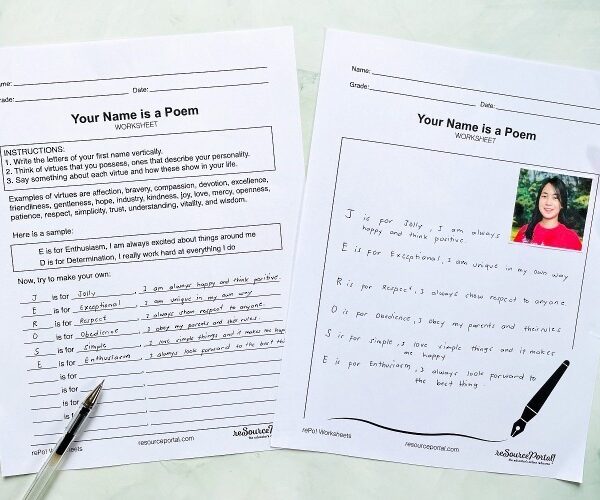 Name:
Grade: Date:
Your Name is a Poem
WORKSHEET
INSTRUCTIONS:
1. Write the letters of your first name vertically.
2. Think of virtues that you possess, ones that describe your personality.
3. Say something about each virtue and how these show in your life.
Examples of virtues are affection, bravery, compassion, devotion, excellence,
friendliness, gentleness, hope, industry, kindness, joy, love, mercy, openness,
patience, respect, simplicity, trust, understanding, vitality, and wisdom.
Here is a sample:
E is for Enthusiasm, I am always excited about things around me
D is for Determination, I really work hard at everything I do
Now, try to make your own:
J is for Jolly, I am always happy and think positive.
E is for Exceptional, I am unique in my own way
R is for Respect, I always show respect to anyone.
O is for Obedience, I obey my parents and their rules.
S is for Simple, I love simple things and it makes me happ
E is for Enthusiasm, I always look forward to the best thi
is for
is for
is for
is for
rePo! Worksheets
resourceportal.com
reSourcePortal!
Name:
Grade: Date:
Your Name is a Poem
WORKSHEET
J is for Jolly, I am always
happy and think positive.
E is for Exceptional, I am unique in my own way
R is for Respect, I always show respect to anyone
O is for Obedience, I obey my parents and their rules
S is for simple, I love simple things and it makes
me happy
E is for Enthusiasm, I always look forward to
the best thing.
rePo! Worksheets
resourceportal.com
reSourcePortal!